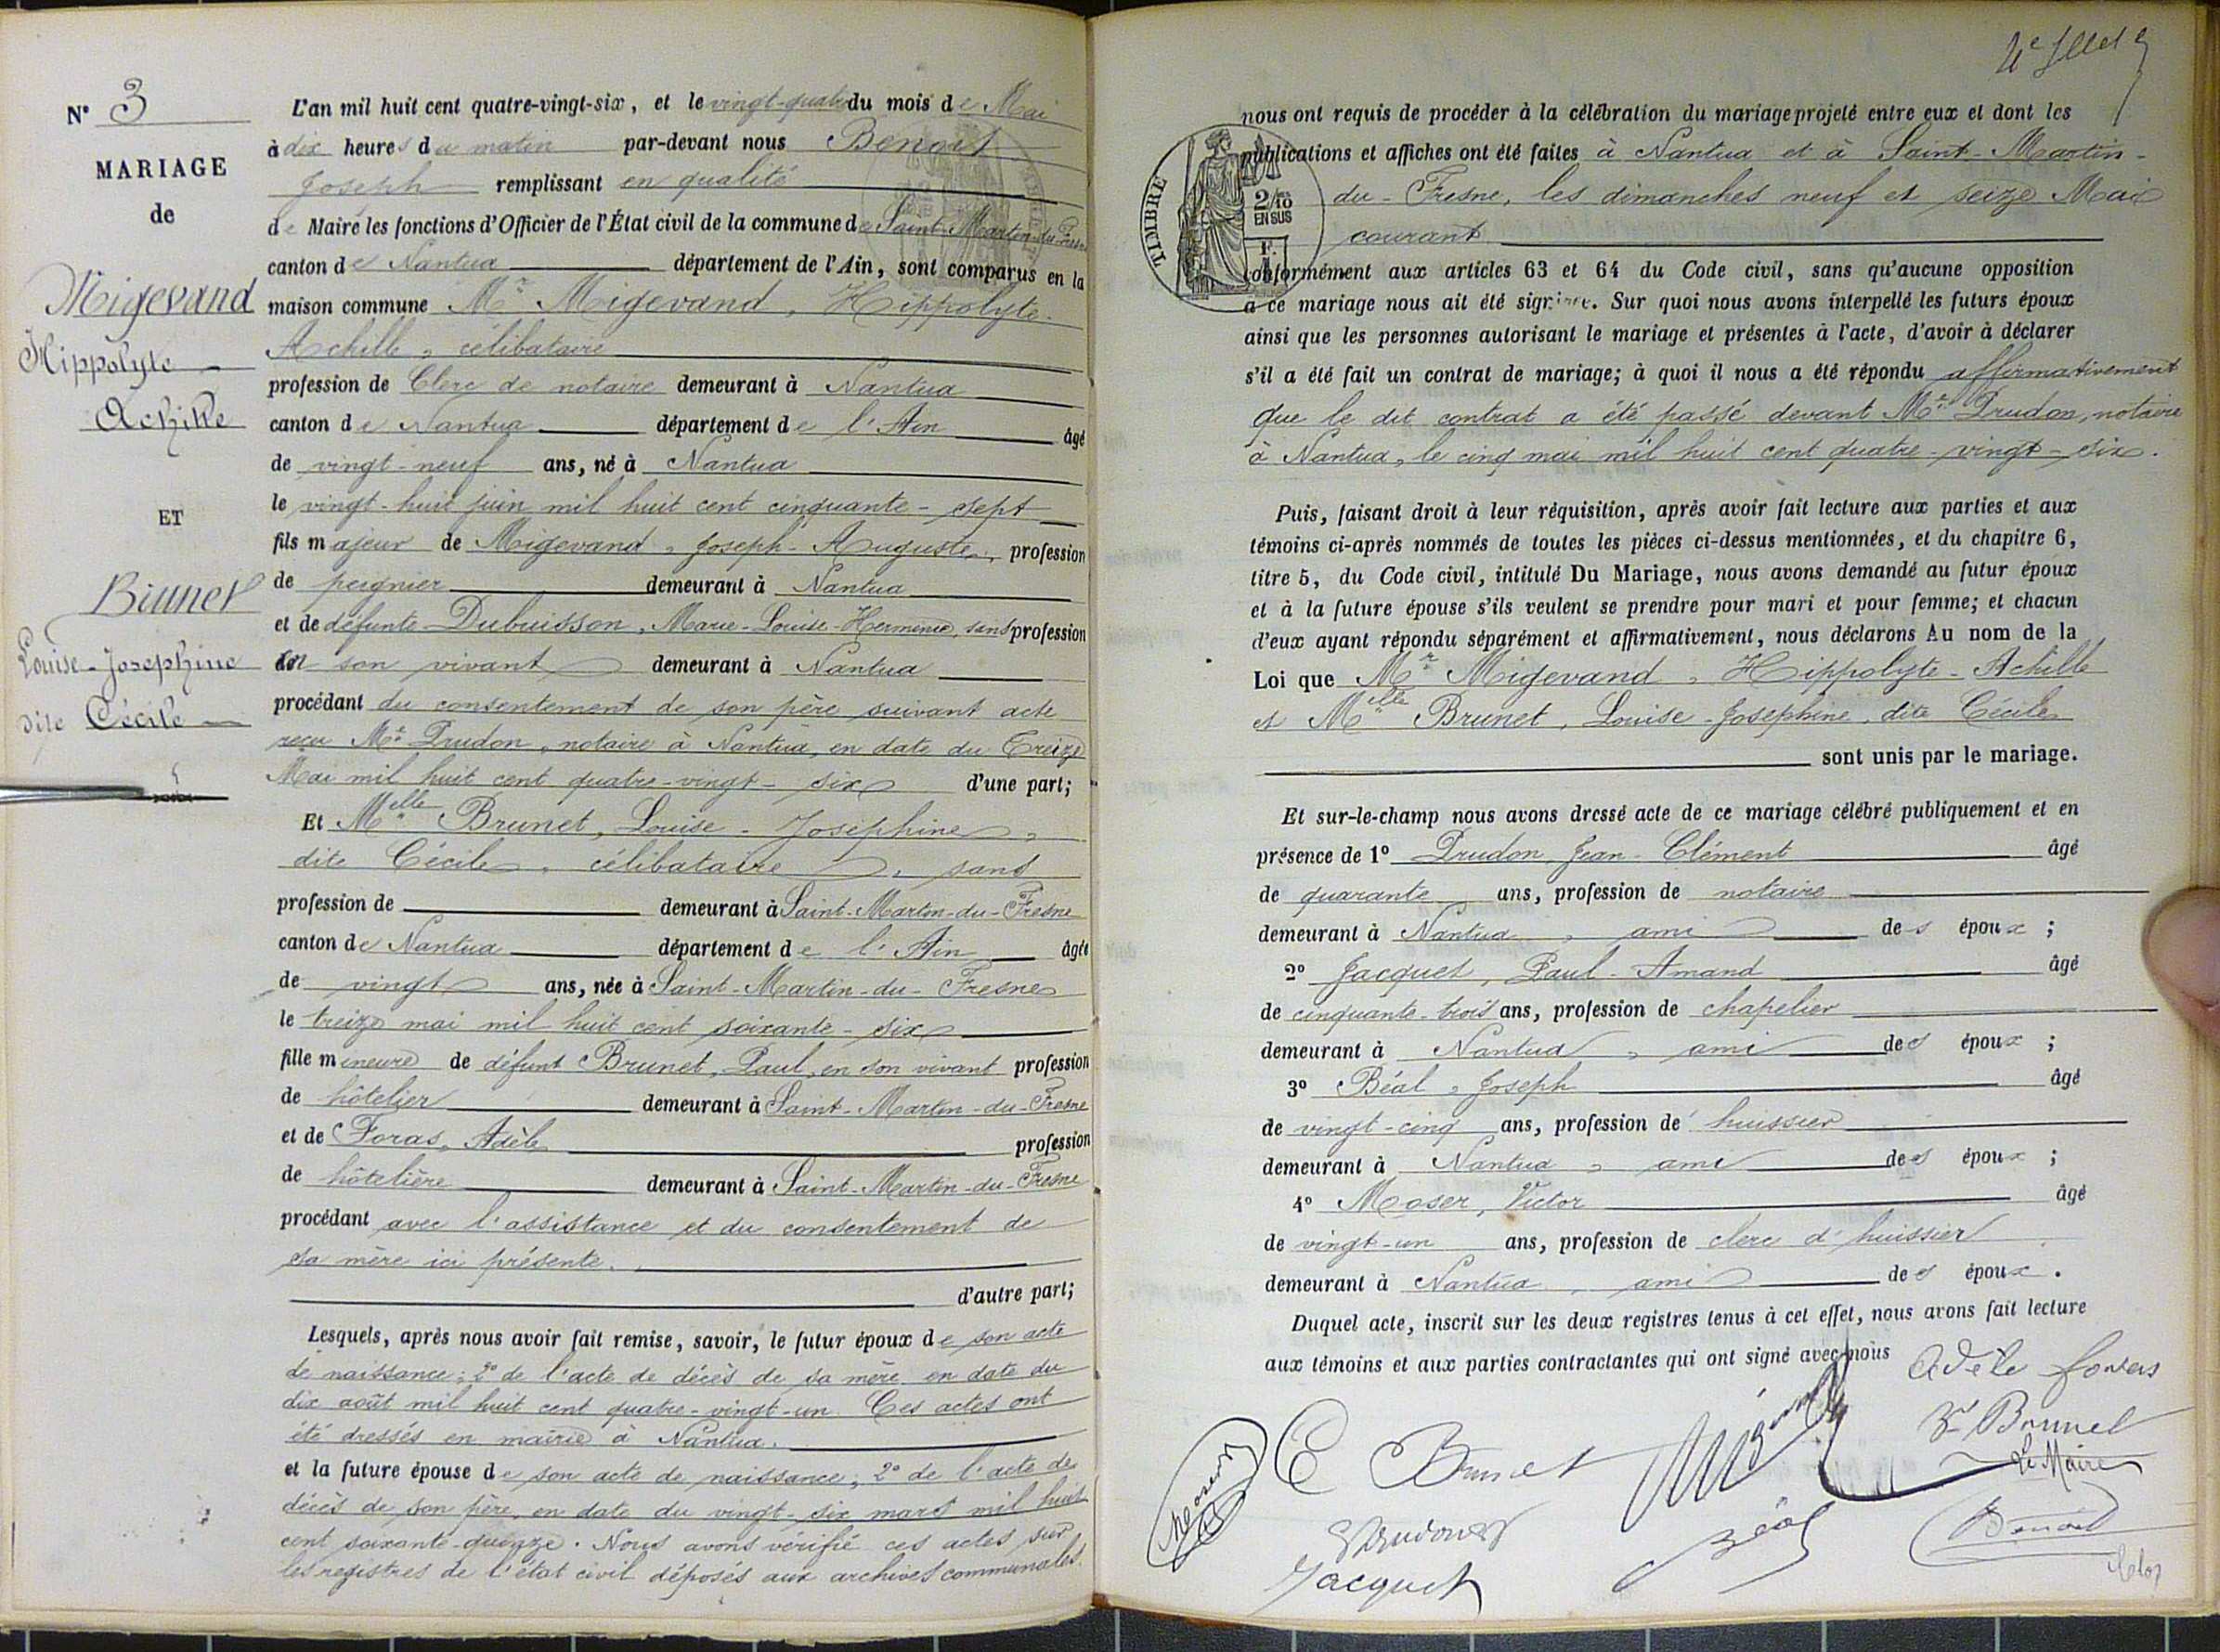 N° 3
MARIAGE
de
Migevand
Hippolyte
Achille
ET
Brunet
Louise-Josephine
dite Cécile
L'an mil huit cent quatre-vingt-six, et le vingt-quatre du mois de Mai
à dix heures du matin par-devant nous Benoit
Joseph remplissant en qualité
de Maire les fonctions d'Officier de l'État civil de la commune de Saint-Martin-du-Fresne
canton de Nantua département de l'Ain, sont comparus en la
maison commune Mr Migevand, Hippolyte-
Achille, célibataire
profession de Clerc de notaire demeurant à Nantua
canton de Nantua département de l'Ain âgé
de vingt-neuf ans, né à Nantua
le vingt-huit juin mil huit cent cinquante-sept
fils majeur de Migevand, Joseph-Auguste, profession
de peignier demeurant à Nantua
et de défunte Dubuisson, Marie-Louise-Herminie, sans profession
en son vivant demeurant à Nantua
procédant du consentement de son père suivant acte
reçu Me Prudon, notaire à Nantua, en date du Treize
Mai mil huit cent quatre-vingt-six d'une part;
Et Melle Brunet, Louise-Joséphine,
dite Cécile, célibataire, sans
profession de demeurant à Saint-Martin-du-Fresne
canton de Nantua département de l'Ain âgée
de vingt ans, née à Saint-Martin-du-Fresne
le treize mai mil huit cent soixante-six
fille mineure de défunt Brunet, Paul, en son vivant profession
de hôtelier demeurant à Saint-Martin-du-Fresne
et de Foras, Adèle profession
de hôtelière demeurant à Saint-Martin-du-Fresne
procédant avec l'assistance et du consentement de
sa mère ici présente.
d'autre part;
Lesquels, après nous avoir fait remise, savoir, le futur époux de son acte
de naissance; 2° de l'acte de décès de sa mère en date du
dix août mil huit cent quatre-vingt-un. Ces actes ont
été dressés en mairie à Nantua.
et la future épouse de son acte de naissance; 2° de l'acte de
décès de son père, en date du vingt-six mars mil huit
cent soixante-quinze. Nous avons vérifié ces actes sur
les registres de l'état civil déposés aux archives communales.
nous ont requis de procéder à la célébration du mariage projeté entre eux et dont les
publications et affiches ont été faites à Nantua et à Saint-Martin-
du-Fresne, les dimanches neuf et seize Mai
courant
TIMBRE
2/10
EN SUS
conformément aux articles 63 et 64 du Code civil, sans qu'aucune opposition
à ce mariage nous ait été signifiée. Sur quoi nous avons interpellé les futurs époux
ainsi que les personnes autorisant le mariage et présentes à l'acte, d'avoir à déclarer
s'il a été fait un contrat de mariage; à quoi il nous a été répondu affirmativement
que le dit contrat a été passé devant Me Prudon, notaire
à Nantua, le cinq mai mil huit cent quatre-vingt-six.
Puis, faisant droit à leur réquisition, après avoir fait lecture aux parties et aux
témoins ci-après nommés de toutes les pièces ci-dessus mentionnées, et du chapitre 6,
titre 5, du Code civil, intitulé Du Mariage, nous avons demandé au futur époux
et à la future épouse s'ils veulent se prendre pour mari et pour femme; et chacun
d'eux ayant répondu séparément et affirmativement, nous déclarons Au nom de la
Loi que Mr Migevand, Hippolyte-Achille
et Melle Brunet, Louise-Josephine, dite Cécile
sont unis par le mariage.
Et sur-le-champ nous avons dressé acte de ce mariage célébré publiquement et en
présence de 1° Prudon, Jean-Clément âgé
de quarante ans, profession de notaire
demeurant à Nantua, ami des époux;
2° Jacquet, Paul-Amand âgé
de cinquante-trois ans, profession de chapelier
demeurant à Nantua, ami des époux;
3° Béal, Joseph âgé
de vingt-cinq ans, profession de huissier
demeurant à Nantua, ami des époux;
4° Moser, Victor âgé
de vingt-un ans, profession de clerc d'huissier
demeurant à Nantua, ami des époux.
Duquel acte, inscrit sur les deux registres tenus à cet effet, nous avons fait lecture
aux témoins et aux parties contractantes qui ont signé avec nous
Adèle foras
Ve Brunet
Moser
C Brunet
Le Maire
Prudon
Béal
Benoit
Jacquet